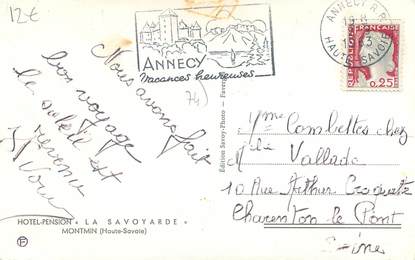 12€
ANNECY
Vacances heureuses
ANNECY R.P.
HAUTE-SAVOIE
0,25
74)
Nous avons fait
bon voyage
le soleil est
revenu
Édition Savoy-Photo
Mme Combettes chez
Mlle Vallade
10 Rue Arthur Croquette
Charenton le Pont
Seine
HOTEL-PENSION "LA SAVOYARDE"
MONTMIN (Haute-Savoie)